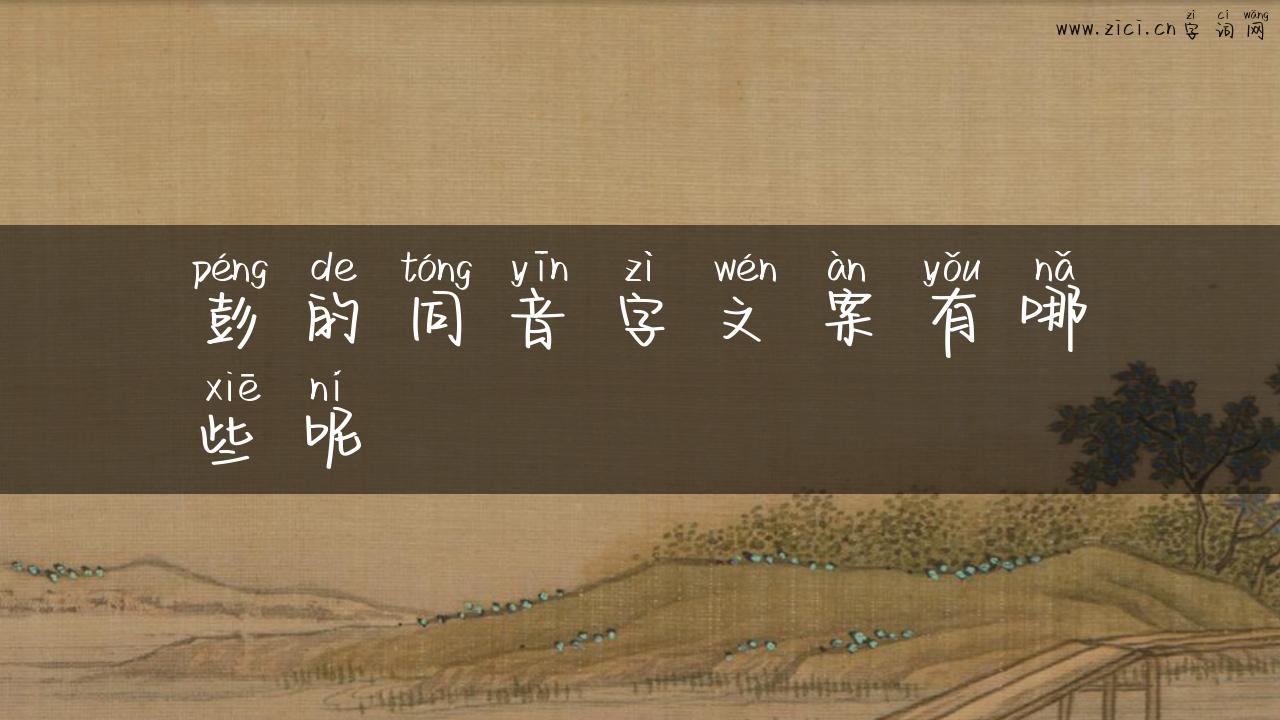 zì cí wǎng
www.zici.cn字词网
péng de tóng yīn zì wén àn yǒu nǎ
彭的同音字文案有哪
xiē ní
些呢